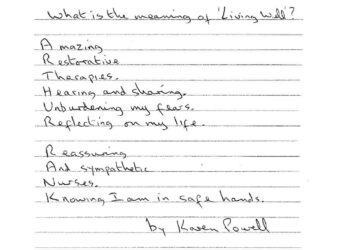 What is the meaning of 'Living Well'?
Amazing
Restorative
Therapies.
Hearing and sharing.
Unburdening my fears.
Reflecting on my life.
Reassuring
And sympathetic
Nurses.
Knowing I am in safe hands.
by Karen Powell